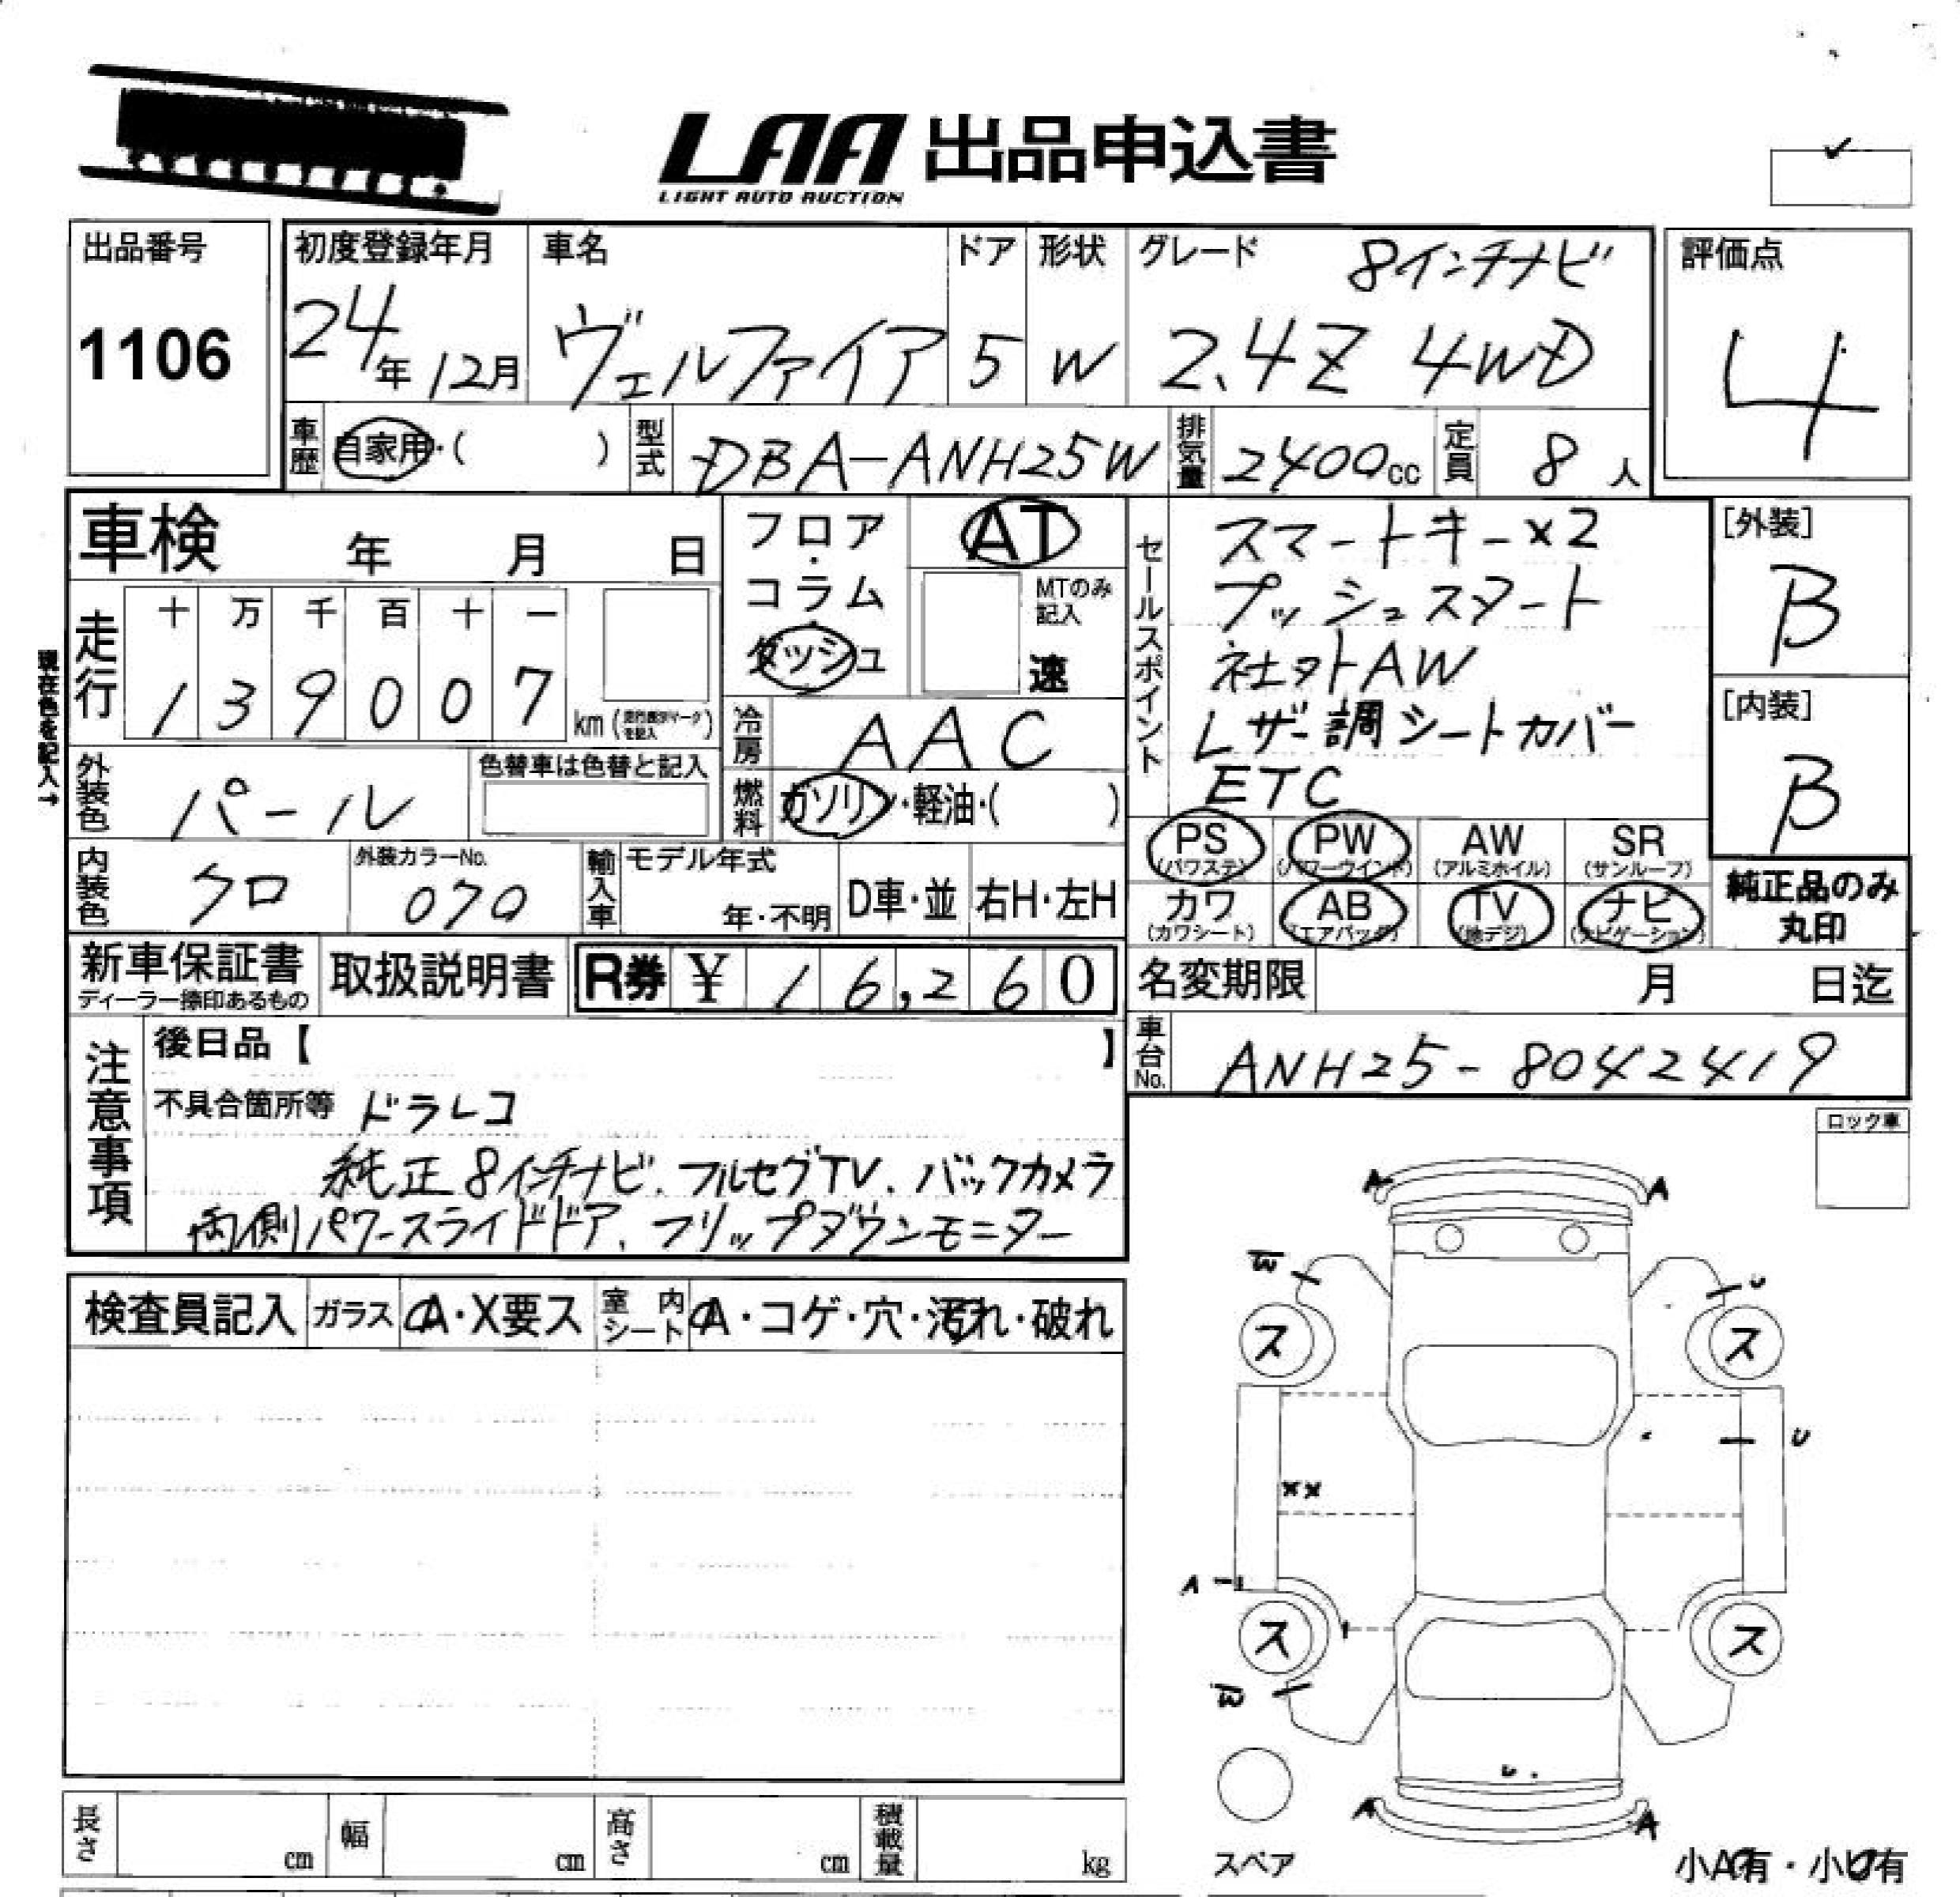 LAA 出品申込書
LIGHT AUTO AUCTION
出品番号
1106
初度登録年月
24年12月
車名
ヴェルファイア
ドア
5
形状
W
グレード
8インチナビ
2.4Z 4WD
評価点
4
車歴 自家用・( )
型式 DBA-ANH25W
排気量 2400cc
定員 8人
車検 年 月 日
フロア・
コラム
ダッシュ
AT
MTのみ
記入
速
セールスポイント
スマートキー×2
プッシュスタート
社外AW
レザー調シートカバー
ETC
[外装]
B
[内装]
B
現在色を記入→
走行
十 万 千 百 十 一
1 3 9 0 0 7
km
冷房 AAC
外装色 パール
色替車は色替と記入
燃料 ガソリン・軽油・( )
PS (パワステ)
PW (パワーウインド)
AW (アルミホイル)
SR (サンルーフ)
カワ (カワシート)
AB (エアバッグ)
TV (地デジ)
ナビ (ナビゲーション)
純正品のみ
丸印
内装色 クロ
外装カラーNo.
070
輸入車
モデル年式
年・不明
D車・並
右H・左H
新車保証書
ディーラー捺印あるもの
取扱説明書
R券 ¥ 16,260
名変期限 月 日迄
車台No. ANH25-8042419
注意事項
後日品【 】
不具合箇所等 ドラレコ
純正8インチナビ、フルセグTV、バックカメラ
両側パワースライドドア、フリップダウンモニター
ロック車
検査員記入
ガラス A・X要ス
室内シート A・コゲ・穴・汚れ・破れ
A A
W U
ス ス
U
XX
A
ス ス
W
U
A A
スペア
小A有・小U有
長さ cm
幅 cm
高さ cm
積載量 kg